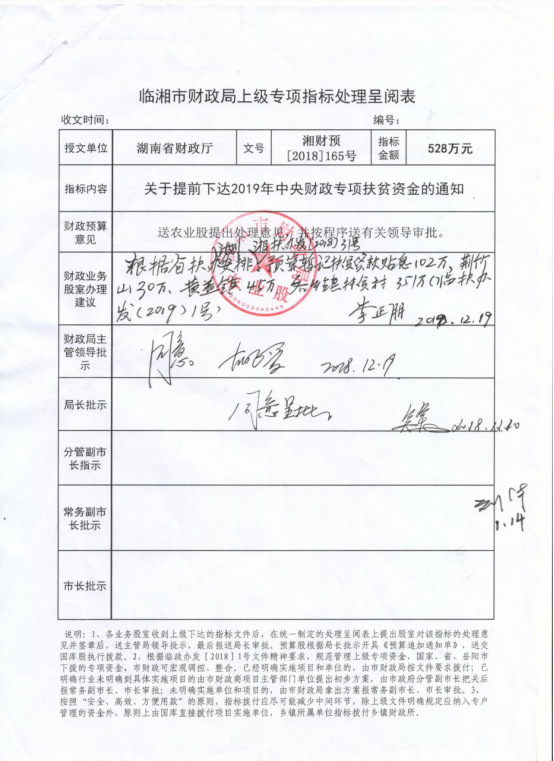 临湘市财政局上级专项指标处理呈阅表
收文时间： 编号：
授文单位 湖南省财政厅 文号 湘财预[2018]165号 指标金额 528万元
指标内容 关于提前下达2019年中央财政专项扶贫资金的通知
财政预算意见 送农业股提出处理意见，并按程序送有关领导审批。
湘扶办发(2018)31号
财政业务股室办理建议 根据省扶办安排 扶贫贷款贴息102万，荆竹
山30万、黄盖镇45万 扶贫村351万(临扶办
发(2019)1号)
李正朋 2018.12.19
财政局主管领导批示 同意 2018.12.19
局长批示 同意呈批。 2018.12.20
分管副市长指示
常务副市长批示 1.14
市长批示
说明：1、各业务股室收到上级下达的指标文件后，在统一制定的处理呈阅表上提出股室对该指标的处理意
见并签章后，送主管局领导批示，最后报送局长审批。预算股根据局长批示开具《预算追加通知单》，送交
国库股执行拨款。2、根据临政办发[2018]1号文件精神要求，规范管理上级专项资金，国家、省、岳阳市
下拨的专项资金，市财政可宏观调控、整合，已经明确实施项目和单位的，由市财政局按文件要求拨付；已
明确行业未明确到具体实施项目的由市财政商项目主管部门单位提出初步方案，由市政府分管副市长把关后
报常务副市长、市长审批；未明确实施单位和项目的，由市财政局拿出方案报常务副市长、市长审批。3、
按照“安全、高效、方便用款”的原则，指标拨付应尽可能减少中间环节，除上级文件明确规定应纳入专户
管理的资金外，原则上由国库直接拨付项目实施单位，乡镇所属单位指标拨付乡镇财政所。